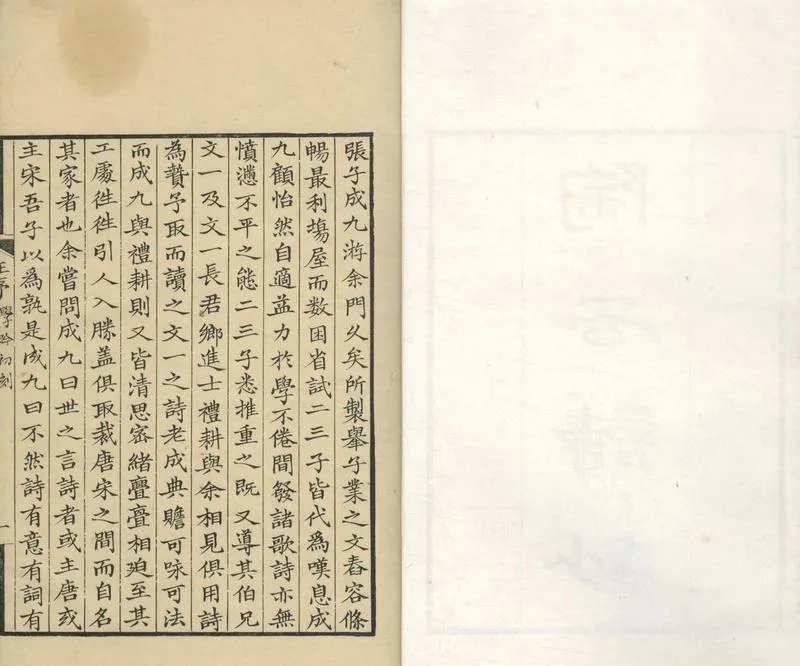 張子成九游余門乆矣所製舉子業之文舂容條
暢最利塲屋而数困省試二三子皆代為嘆息成
九顧怡然自適益力於學不倦間發諸歌詩亦無
憤懣不平之態二三子悉推重之既又導其伯兄
文一及文一長君鄉進士禮耕與余相見俱用詩
為贄予取而讀之文一之詩老成典贍可咏可法
而成九與禮耕則又皆清思宻緒亹亹相廹至其
工處徃徃引人入勝盖俱取裁唐宋之間而自名
其家者也余嘗問成九曰世之言詩者或主唐或
主宋吾子以為孰是成九曰不然詩有意有詞有
王序
學吟初刻
一